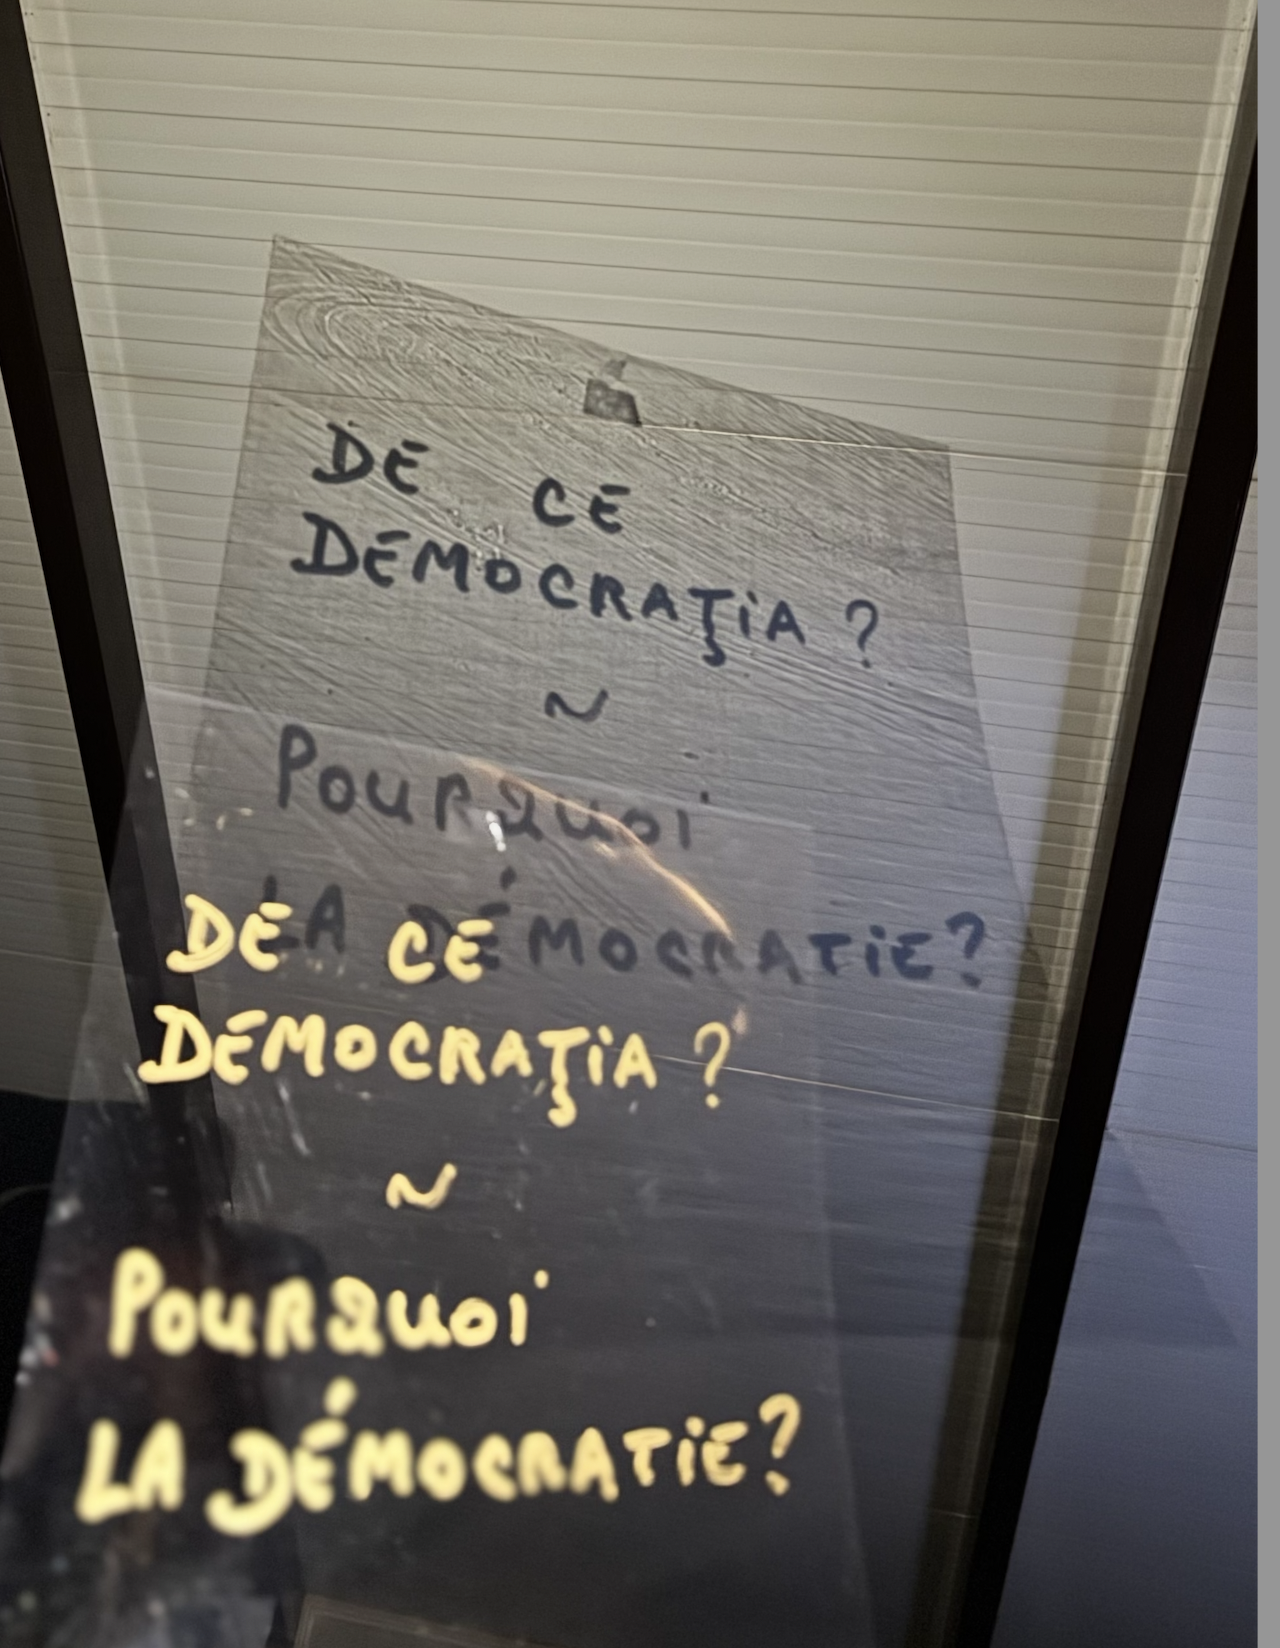 DE CE
DEMOCRAŢiA ?
~
POURQUOi
LA DÉMOCRATiE?
DE CE
DEMOCRAŢiA ?
~
POURQUOi
LA DÉMOCRATiE?